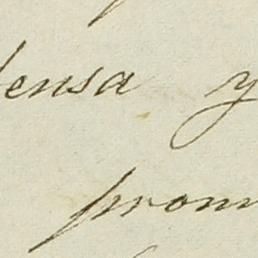 ensa y
prom